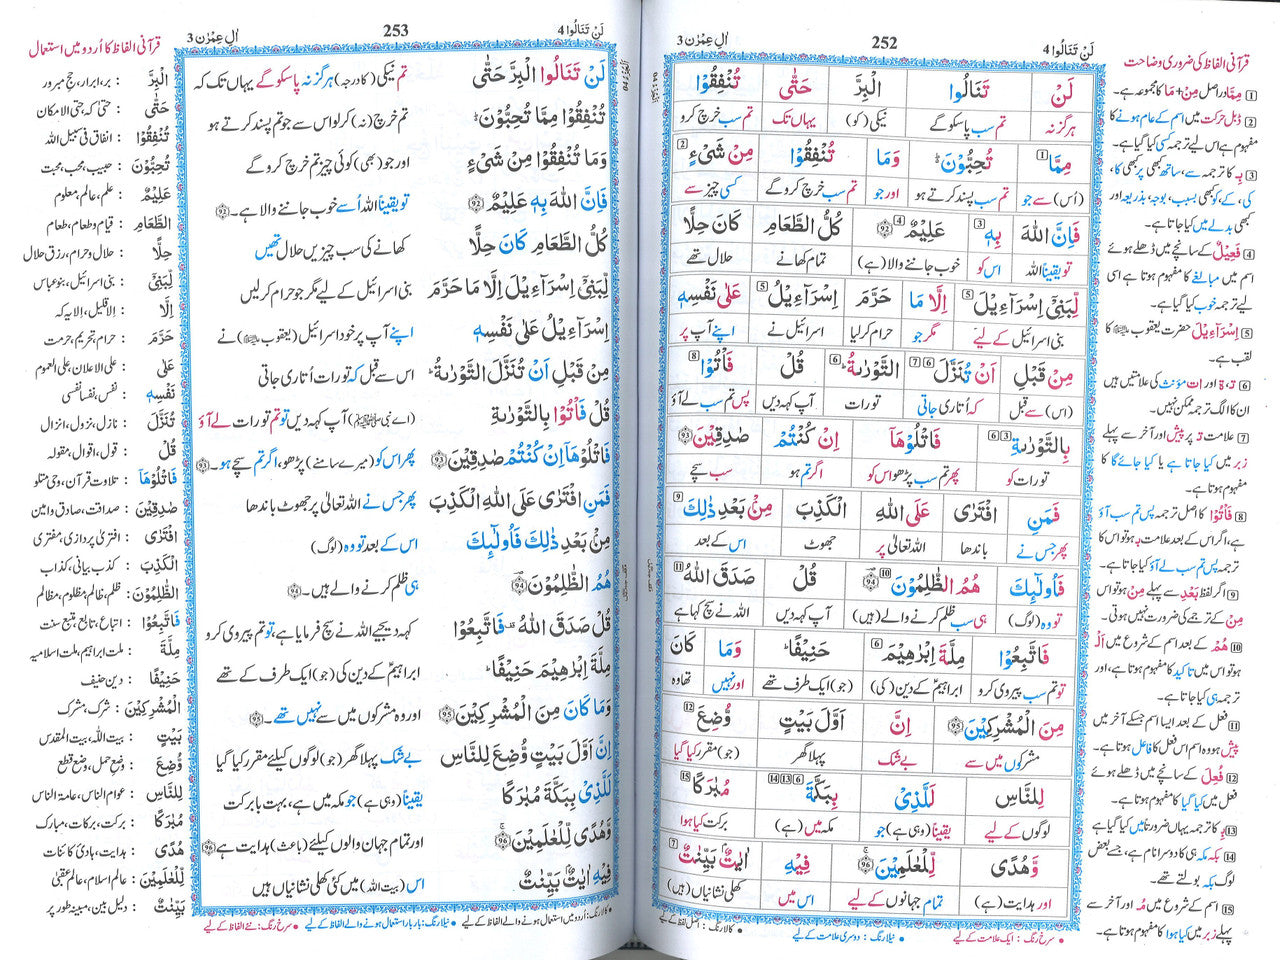 لَنْ تَنَالُوا 4
252
اٰلِ عِمْرٰن 3
قرآنی الفاظ کی ضروری وضاحت
لَنْ تَنَالُوا الْبِرَّ حَتّٰى تُنْفِقُوْا
ہرگز نہ تم سب پاسکو گے نیکی (کو) یہاں تک تم سب خرچ کرو
مِمَّا تُحِبُّوْنَ ؕ وَمَا تُنْفِقُوْا مِنْ شَیْءٍ
(اُس) سے جو تم سب پسند کرتے ہو اور جو تم سب خرچ کرو گے کسی چیز سے
فَاِنَّ اللّٰهَ بِهٖ عَلِيْمٌ ﴿92﴾ كُلُّ الطَّعَامِ كَانَ حِلًّا
تو یقیناً اللہ اس کو خوب جاننے والا (ہے) تمام کھانے حلال تھے
لِّبَنِيْٓ اِسْرَآءِيْلَ اِلَّا مَا حَرَّمَ اِسْرَآءِيْلُ عَلٰى نَفْسِهٖ
بنی اسرائیل کے لیے مگر جو حرام کر لیا اسرائیل نے اپنے آپ پر
مِنْ قَبْلِ اَنْ تُنَزَّلَ التَّوْرٰىةُ ؕ قُلْ فَاْتُوْا
(اس) سے قبل کہ اُتاری جاتی تورات آپ کہہ دیں پس تم سب لے آؤ
بِالتَّوْرٰىةِ فَاتْلُوْهَآ اِنْ كُنْتُمْ صٰدِقِيْنَ ﴿93﴾
تورات کو پھر تم سب پڑھو اس کو اگر تم ہو سب سچے
فَمَنِ افْتَرٰى عَلَى اللّٰهِ الْكَذِبَ مِنْۢ بَعْدِ ذٰلِكَ
پھر جس نے باندھا اللہ تعالیٰ پر جھوٹ اس کے بعد
فَاُولٰٓئِكَ هُمُ الظّٰلِمُوْنَ ﴿94﴾ قُلْ صَدَقَ اللّٰهُ
تو وہ (لوگ) ہی سب ظلم کرنے والے (ہیں) آپ کہہ دیں اللہ نے سچ کہا ہے
فَاتَّبِعُوْا مِلَّةَ اِبْرٰهِيْمَ حَنِيْفًا ؕ وَمَا كَانَ
تو تم سب پیروی کرو ابراہیم کے دین (کی) (جو) ایک طرف کے تھے اور نہیں تھا وہ
مِنَ الْمُشْرِكِيْنَ ﴿95﴾ اِنَّ اَوَّلَ بَيْتٍ وُّضِعَ
مشرکوں میں سے بے شک پہلا گھر (جو) مقرر کیا گیا
لِلنَّاسِ لَلَّذِيْ بِبَكَّةَ مُبٰرَكًا
لوگوں کے لیے یقیناً (وہی ہے) جو مکہ میں (ہے) برکت کیا ہوا
وَّهُدًى لِّلْعٰلَمِيْنَ ﴿96﴾ فِيْهِ اٰيٰتٌۢ بَيِّنٰتٌ
اور ہدایت (ہے) تمام جہانوں کے لیے اس میں کھلی نشانیاں (ہیں)
1 مِمَّا دراصل مِنْ + مَا کا مجموعہ ہے۔
2 ڈبل حرکت میں اسم کے عام ہونے کا
مفہوم ہے اس لیے ترجمہ کسی کیا گیا ہے۔
3 بِهٖ کا ترجمہ سے، ساتھ بھی پر کبھی کا،
کی، کے، کو کبھی بسبب، بوجہ، بذریعہ اور
کبھی بدلے میں کیا جاتا ہے۔
4 فَعِيْلٌ کے سانچے میں ڈھلے ہوئے
اسم میں مبالغے کا مفہوم ہوتا ہے اسی
لیے ترجمہ خوب کیا گیا ہے۔
5 اِسْرَآءِيْلَ حضرت یعقوب کا
لقب ہے۔
6 ة، ت اور ات مؤنث کی علامتیں ہیں
ان کا الگ ترجمہ ممکن نہیں۔
7 علامت تـ پر پیش اور آخر سے پہلے
زبر میں کیا جاتا ہے یا کیا جائے گا کا
مفہوم ہوتا ہے۔
8 فَاْتُوْا کا اصل ترجمہ پس تم سب آؤ
ہے، اگر اس کے بعد علامت بـ ہو تو اس کا
ترجمہ پس تم سب لے آؤ کیا جاتا ہے۔
9 اگر لفظ بَعْدِ سے پہلے مِنْ ہو تو اس
مِنْ کے ترجمے کی ضرورت نہیں ہوتی۔
10 هُمْ کے بعد اسم کے شروع میں اَلْ
ہو تو اس میں تاکید کا مفہوم ہوتا ہے، اور
ترجمہ ہی کیا جاتا ہے۔
11 فعل کے بعد ایسا اسم جسکے آخر میں
پیش ہو وہ اسم اس فعل کا فاعل ہوتا ہے۔
12 فُعِلَ کے سانچے میں ڈھلے ہوئے
فعل میں کیا گیا کا مفہوم ہوتا ہے۔
13 بـ کا ترجمہ یہاں ضرورتاً میں کیا گیا ہے
14 بکہ مکہ ہی کا دوسرا نام ہے، جسے بعض
لوگ بکہ بولتے تھے۔
15 اسم کے شروع میں مُـ اور آخر سے
پہلے زبر میں کیا ہوا کا مفہوم ہوتا ہے۔
• سرخ رنگ : ایک علامت کے لیے • نیلا رنگ : دوسری علامت کے لیے • کالا رنگ : اصل لفظ کے لیے
لَنْ تَنَالُوا 4
253
اٰلِ عِمْرٰن 3
قرآنی الفاظ کا اُردو میں استعمال
لَنْ تَنَالُوا الْبِرَّ حَتّٰى تم نیکی (کا درجہ) ہرگز نہ پاسکو گے یہاں تک کہ
تُنْفِقُوْا مِمَّا تُحِبُّوْنَ ؕ تم خرچ (نہ) کرلو اس سے جو تم پسند کرتے ہو
وَمَا تُنْفِقُوْا مِنْ شَیْءٍ اور جو (بھی) کوئی چیز تم خرچ کرو گے
فَاِنَّ اللّٰهَ بِهٖ عَلِيْمٌ ﴿92﴾ تو یقیناً اللہ اُسے خوب جاننے والا ہے۔ ﴿92﴾
كُلُّ الطَّعَامِ كَانَ حِلًّا کھانے کی سب چیزیں حلال تھیں
لِّبَنِيْٓ اِسْرَآءِيْلَ اِلَّا مَا حَرَّمَ بنی اسرائیل کے لیے مگر جو حرام کر لیں
اِسْرَآءِيْلُ عَلٰى نَفْسِهٖ اپنے آپ پر خود اسرائیل (یعقوب) نے
مِنْ قَبْلِ اَنْ تُنَزَّلَ التَّوْرٰىةُ ؕ اس سے قبل کہ تورات اُتاری جاتی
قُلْ فَاْتُوْا بِالتَّوْرٰىةِ (اے نبی ﷺ) آپ کہہ دیں تو تم تورات لے آؤ
فَاتْلُوْهَآ اِنْ كُنْتُمْ صٰدِقِيْنَ ﴿93﴾ پھر اس کو (میرے سامنے) پڑھو، اگر تم سچے ہو۔ ﴿93﴾
فَمَنِ افْتَرٰى عَلَى اللّٰهِ الْكَذِبَ پھر جس نے اللہ تعالیٰ پر جھوٹ باندھا
مِنْۢ بَعْدِ ذٰلِكَ فَاُولٰٓئِكَ اس کے بعد تو وہ (لوگ)
هُمُ الظّٰلِمُوْنَ ﴿94﴾ ہی ظلم کرنے والے ہیں۔ ﴿94﴾
قُلْ صَدَقَ اللّٰهُ فَاتَّبِعُوْا کہہ دیجیے اللہ نے سچ فرمایا ہے، تو تم پیروی کرو
مِلَّةَ اِبْرٰهِيْمَ حَنِيْفًا ؕ ابراہیم کے دین کی (جو) ایک طرف کے تھے
وَمَا كَانَ مِنَ الْمُشْرِكِيْنَ ﴿95﴾ اور وہ مشرکوں میں سے نہیں تھے۔ ﴿95﴾
اِنَّ اَوَّلَ بَيْتٍ وُّضِعَ لِلنَّاسِ بے شک پہلا گھر (جو) لوگوں کیلئے مقرر کیا گیا
لَلَّذِيْ بِبَكَّةَ مُبٰرَكًا یقیناً (وہی ہے) جو مکہ میں ہے، بہت بابرکت
وَّهُدًى لِّلْعٰلَمِيْنَ ﴿96﴾ اور تمام جہان والوں کیلئے (باعث) ہدایت ہے ﴿96﴾
فِيْهِ اٰيٰتٌۢ بَيِّنٰتٌ اس (بیت اللہ) میں کئی کھلی نشانیاں ہیں
الْبِرَّ : بر، ابرار، حج مبرور
حَتّٰى : حتی کہ، حتی الامکان
تُنْفِقُوْا : انفاق فی سبیل اللہ
تُحِبُّوْنَ : حبیب، محب، محبت
عَلِيْمٌ : علم، عالم، معلوم
الطَّعَامِ : قیام و طعام، طعام
حِلًّا : حلال و حرام، رزق حلال
لِبَنِيْٓ : بنی اسرائیل، بنو عباس
اِلَّا : الا قلیل، الا یہ کہ
حَرَّمَ : حرام، تحریم، حرمت
عَلٰى : علی الاعلان، علی العموم
نَفْسِهٖ : نفس، نفسا نفسی
تُنَزَّلَ : نازل، نزول، انزال
قُلْ : قول، اقوال، مقولہ
فَاتْلُوْهَا : تلاوت قرآن، وحی متلو
صٰدِقِيْنَ : صداقت، صادق و امین
افْتَرٰى : افتری پردازی، مفتری
الْكَذِبَ : کذب بیانی، کذاب
الظّٰلِمُوْنَ : ظلم، ظالم، مظلوم، مظالم
فَاتَّبِعُوْا : اتباع، تابع، متبع سنت
مِلَّةَ : ملت ابراہیم، ملت اسلامیہ
حَنِيْفًا : دین حنیف
الْمُشْرِكِيْنَ : شرک، مشرک
بَيْتٍ : بیت اللہ، بیت المقدس
وُّضِعَ : وضع حمل، وضع قطع
لِلنَّاسِ : عوام الناس، عامۃ الناس
مُبٰرَكًا : برکت، برکات، مبارک
هُدًى : ہدایت، ہادی کائنات
لِلْعٰلَمِيْنَ : عالم اسلام، عالم عقبی
بَيِّنٰتٌ : دلیل بین، مبینہ طور پر
• کالا رنگ : اُردو میں استعمال ہونے والے الفاظ کے لیے • نیلا رنگ : بار بار استعمال ہونے والے الفاظ کے لیے • سرخ رنگ : نئے الفاظ کے لیے